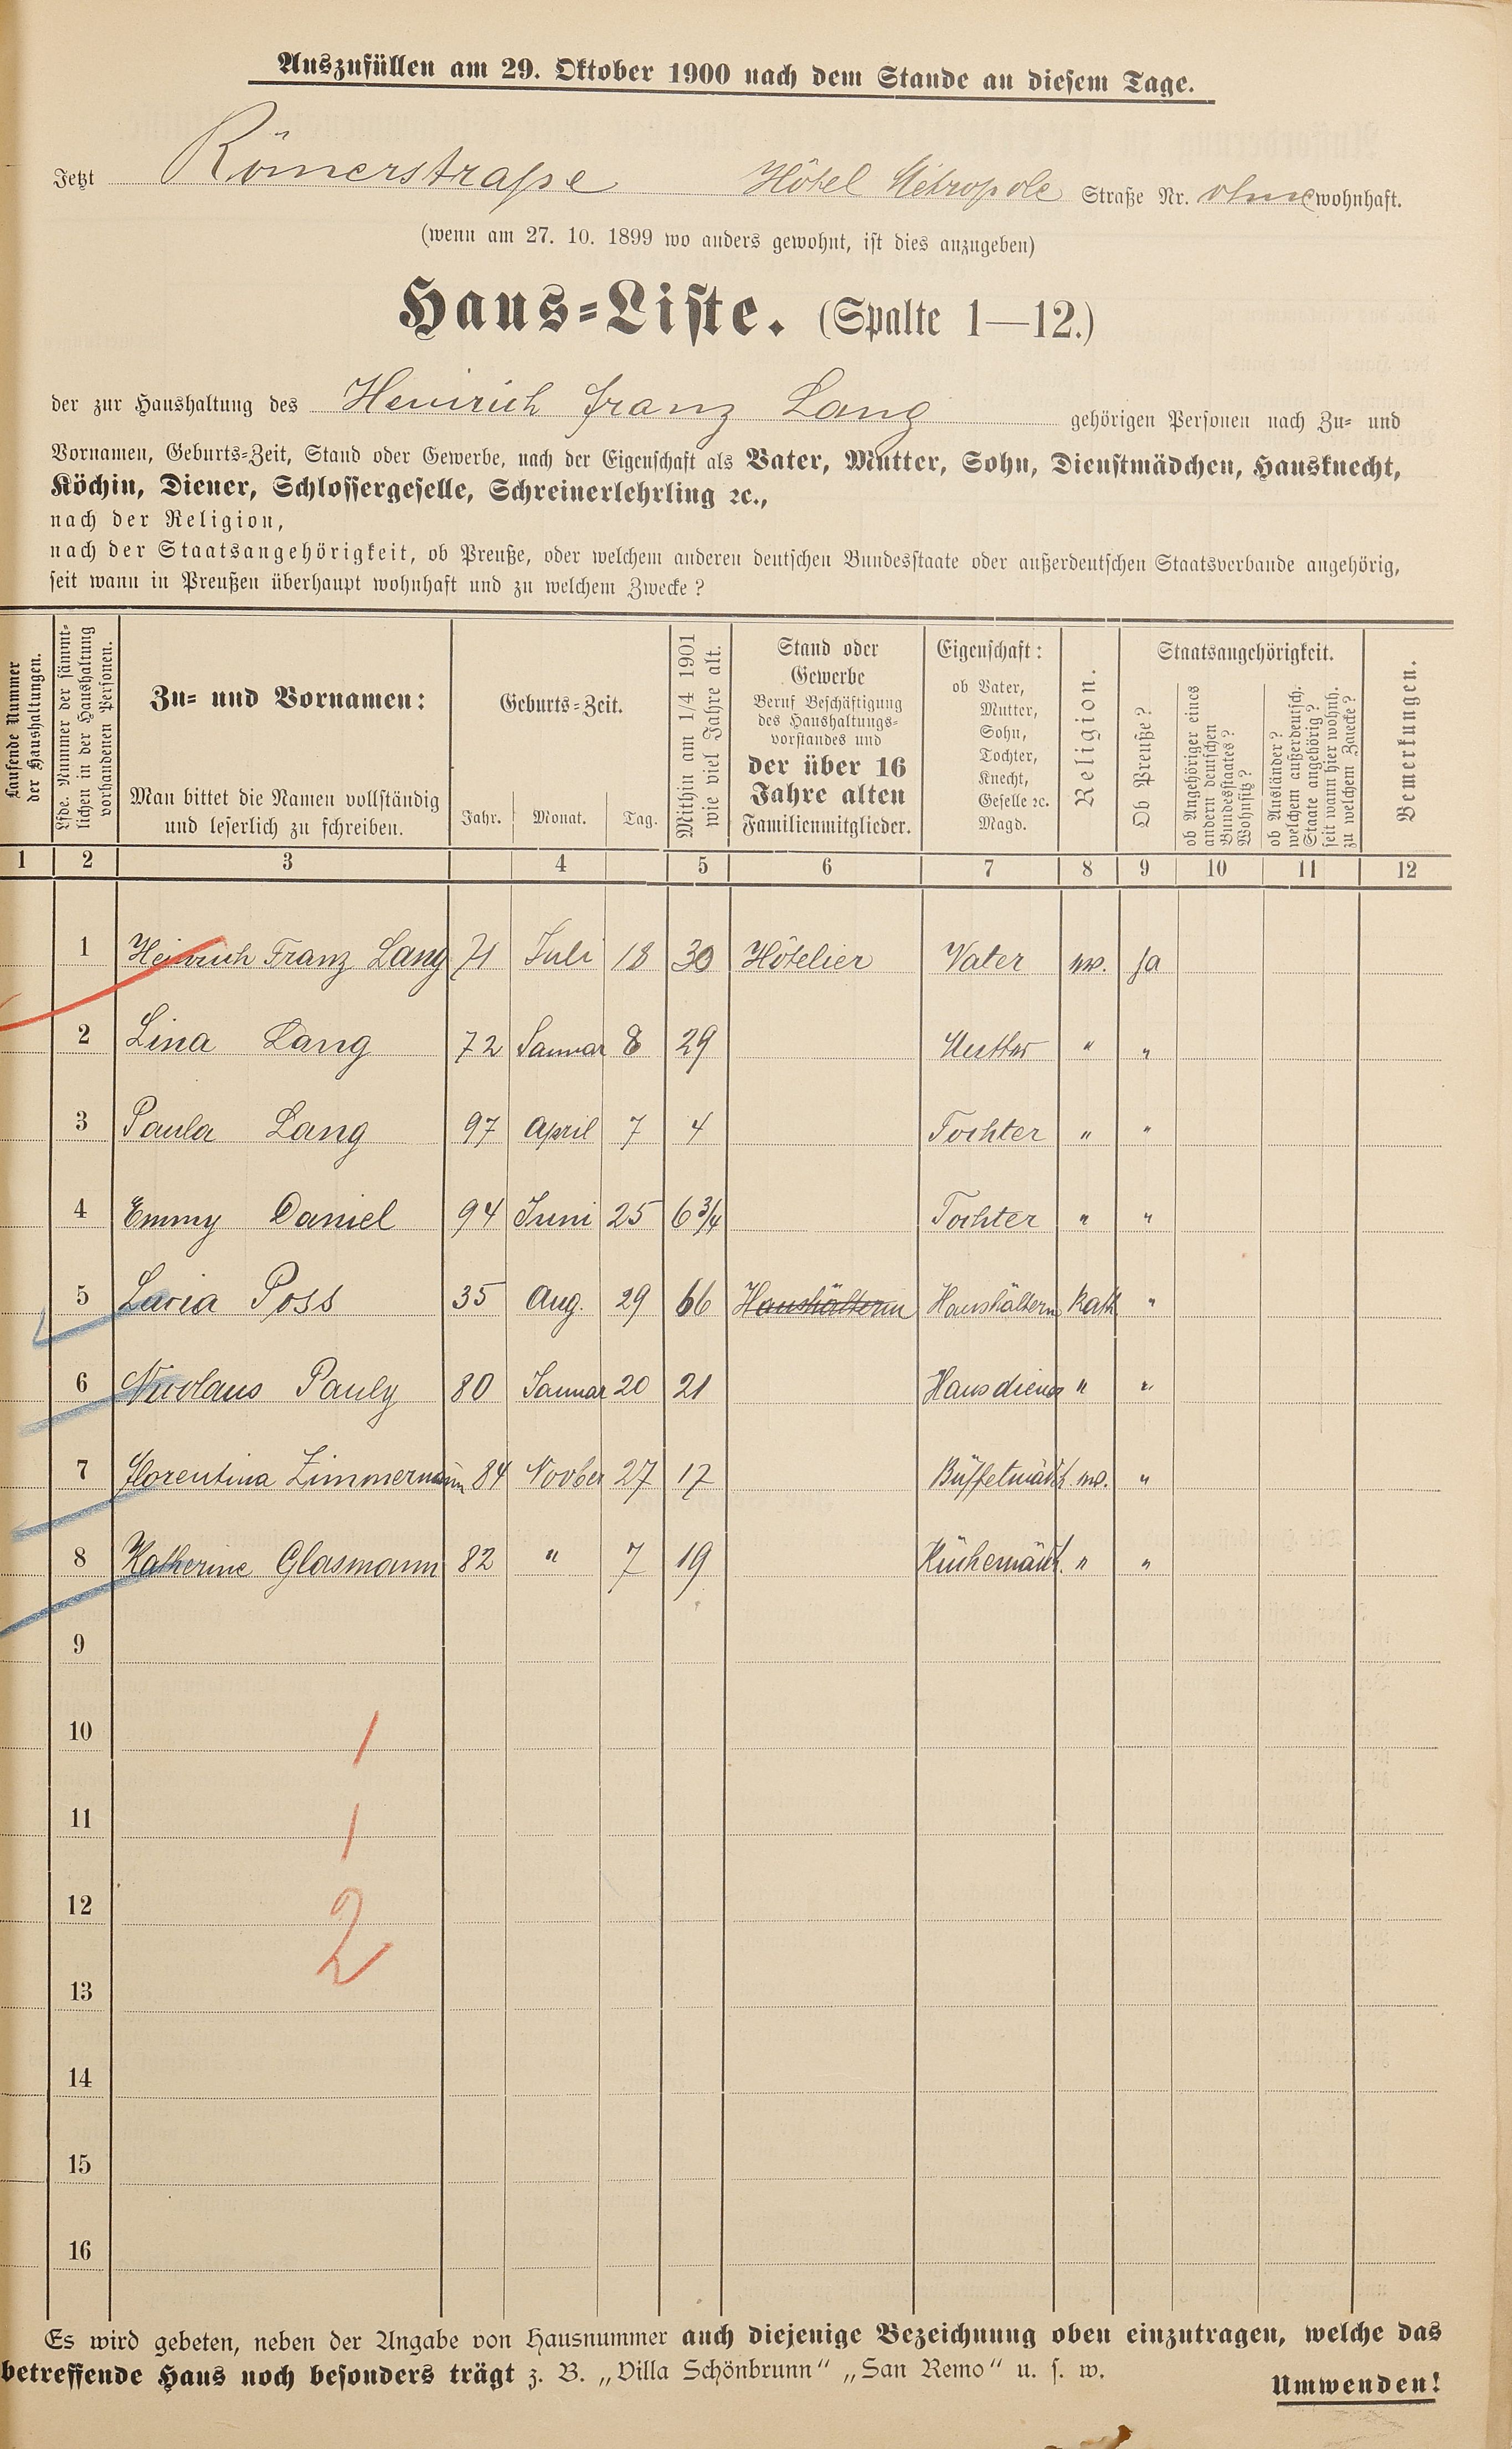 Auszufüllen am 29. Oktober 1900 nach dem Stande an diesem Tage.
Jetzt Römerstraße Hôtel Métropole Straße Nr. ohne wohnhaft.
(wenn am 27. 10. 1899 wo anders gewohnt, ist dies anzugeben)
Haus=Liste. (Spalte 1—12.)
der zur Haushaltung des Heinrich Franz Lang gehörigen Personen nach Zu= und
Vornamen, Geburts=Zeit, Stand oder Gewerbe, nach der Eigenschaft als Vater, Mutter, Sohn, Dienstmädchen, Hausknecht,
Köchin, Diener, Schlossergeselle, Schreinerlehrling ꝛc.,
nach der Religion,
nach der Staatsangehörigkeit, ob Preuße, oder welchem anderen deutschen Bundesstaate oder außerdeutschen Staatsverbande angehörig,
seit wann in Preußen überhaupt wohnhaft und zu welchem Zwecke?
Laufende Nummer
der Haushaltungen.
Lfde. Nummer der sämmt-
lichen in der Haushaltung
vorhandenen Personen.
Zu= und Vornamen:
Man bittet die Namen vollständig
und leserlich zu schreiben.
Geburts=Zeit.
Jahr. Monat. Tag.
Mithin am 1/4 1901
wie viel Jahre alt.
Stand oder
Gewerbe
Beruf Beschäftigung
des Haushaltungs-
vorstandes und
der über 16
Jahre alten
Familienmitglieder.
Eigenschaft:
ob Vater,
Mutter,
Sohn,
Tochter,
Knecht,
Geselle ꝛc.
Magd.
Religion.
Staatsangehörigkeit.
Ob Preuße?
ob Angehöriger eines
andern deutschen
Bundesstaates?
Wohnsitz?
ob Ausländer?
welchem außerdeutsch.
Staate angehörig?
seit wann hier wohnh.
zu welchem Zwecke?
Bemerkungen.
1 2 3 4 5 6 7 8 9 10 11 12
1 Heinrich Franz Lang 71 Juli 18 30 Hôtelier Vater ev. ja
2 Lina Lang 72 Januar 8 29 Mutter " "
3 Paula Lang 97 April 7 4 Tochter " "
4 Emmy Daniel 94 Juni 25 6 3/4 Tochter " "
5 Poss 35 Aug. 29 66 Haushälterin Haushälterin Kath. "
6 Nicolaus Pauly 80 Januar 20 21 Hausdiener " "
7 Florentina Zimmermann 84 Novber 27 17 Büffetmädch. ev. "
8 Katherine Glasmann 82 " 7 19 Küchemädch. " "
9
10
1
11
1
12
2
13
14
15
16
Es wird gebeten, neben der Angabe von Hausnummer auch diejenige Bezeichnung oben einzutragen, welche das
betreffende Haus noch besonders trägt z. B. „Villa Schönbrunn“ „San Remo“ u. s. w.
Umwenden!